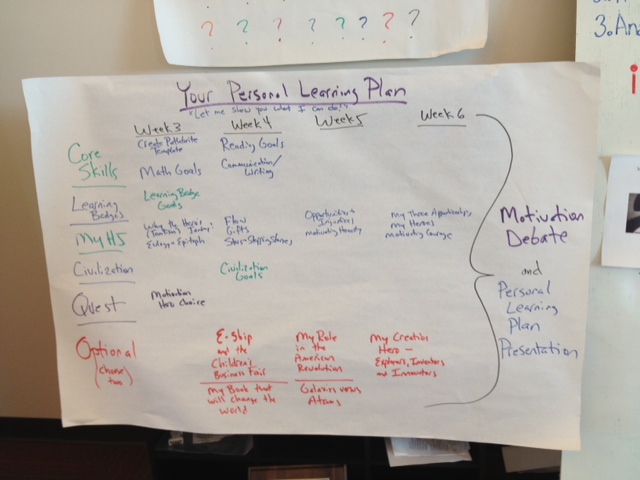 ? ? ? ? ? ? ?
3. An
i
Your Personal Learning Plan
"Let me show you what I can do!"
Week 3 Week 4 Week 5 Week 6
Core Skills
Create Pathbrite Template
Reading Goals
Math Goals
Communication/
Writing
Learning Badges
Learning Badge
Goals
My HJ
Eulogy + Epitaph
Flow
Gifts
Stars + Stepping Stones
Opportunities +
Injustices
My Three Apprenticeships,
my Heroes
Civilization
Civilization
Goals
Quest
Motivation
Hero Choice
Optional
(choose two)
E-Ship
and the
Children's
Business Fair
My Book that
will change the
World
My Role
in the
American
Revolution
Galaxies versus
Atoms
My Creative
Hero -
Explorers, Inventors
and Innovators
Motivation
Debate
and
Personal
Learning
Plan
Presentation